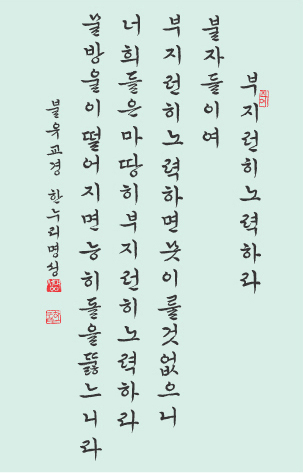 부지런히노력하라
불자들이여
부지런히노력하면못이를것없으니
너희들은마땅히부지런히노력하라
물방울이떨어지면능히돌을뚫느니라
불유교경 한누리명상